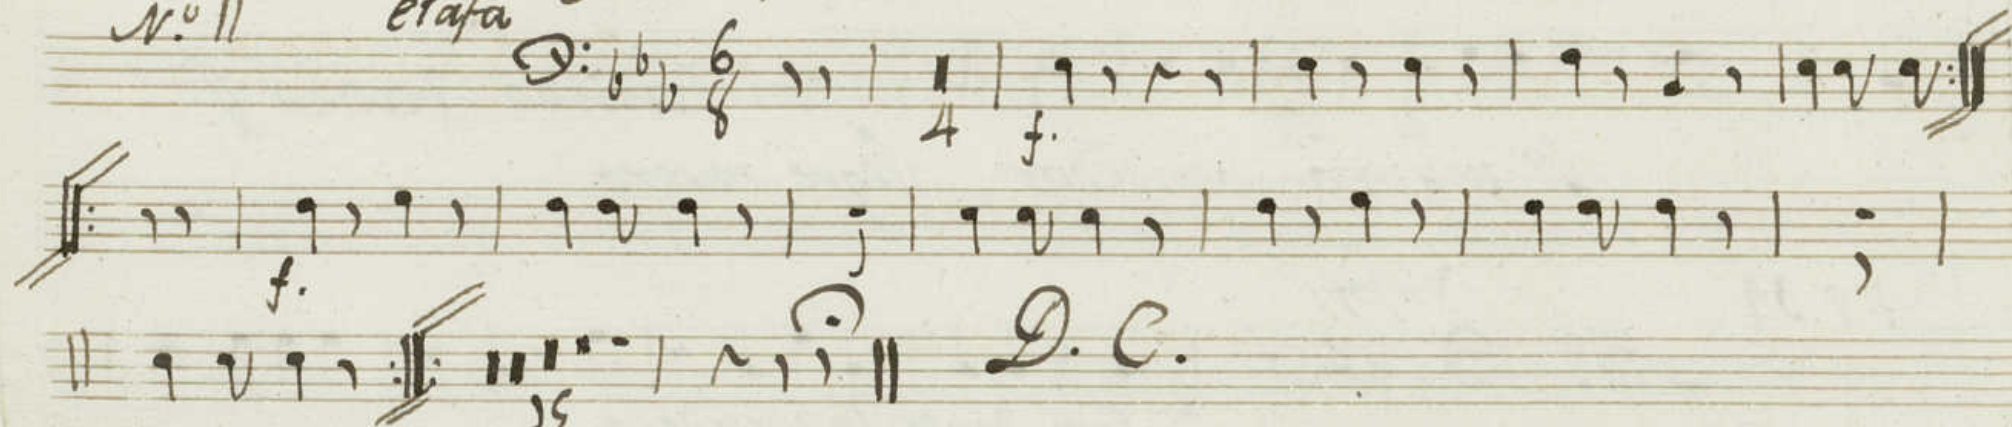 N.º 11 etafa
6
8
4 f.
f.
15
D. C.